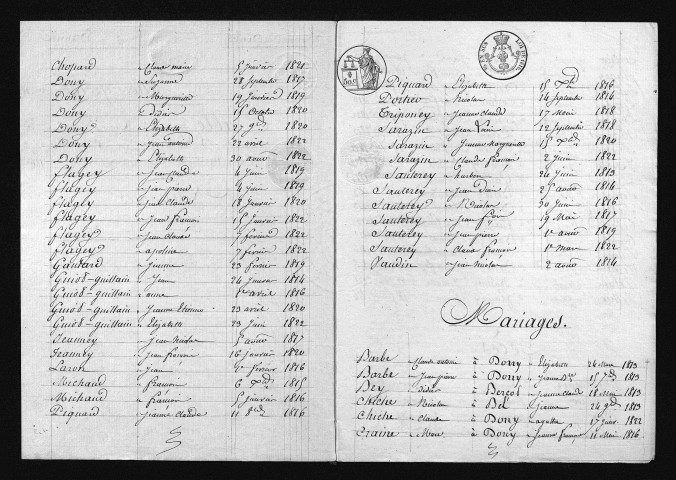 Chopard Claude marie 5 Janvier 1821
Dony Suzanne 28 Septembre 1817
Dony Marguerite 19 Janvier 1819
Dony Didier 15 Octobre 1820
Dony Elizabeth 27 9bre 1820
Dony Jean antoine 22 avril 1822
Dony Elizabeth 30 aout 1822
Flagey Jean Claude 4 Juin 1819
Flagey Jean pierre 4 Juin 1819
Flagey Jean Claude 18 Janvier 1820
Flagey Jean francois 1er Janvier 1822
Flagey Jean Claude 7 fevrier 1822
Flagey apoline 7 fevrier 1822
Gantard Jeanne 23 fevrier 1819
Guiod-guillain Jeanne 24 Janvier 1814
Guiod-guillain anne 1er avril 1816
Guiod-guillain Jeanne Etienne 23 avril 1820
Guiod-guillain Elizabeth 23 Juin 1822
Jeanney Jean Nicolas 5 aout 1817
Jeanney Jean francois 16 Janvier 1820
Laron Jean fevrier 1816
Michaud francois 6 1815
Michaud francois 5 Janvier 1816
Piquard Jeanne Claude 11 1816
50c
Piquard Elizabeth 15 1816
Porteret Nicolas 14 Septembre 1814
Triponey Jeanne Claude 17 Mai 1818
Sarazin Jean 12 Septembre 1818
Sarazin Jeanne Marguerite 15 1820
Sarazin Claude francois 2 Juin 1822
Sautorey 24 Juin 1813
Sautorey Jean 25 aout 1814
Sautorey Nicolas 30 Juin 1816
Sautorey Jean 19 Mai 1817
Sautorey Jean pierre 1er aout 1819
Sautorey Claude francois 1er Mars 1822
Vaudin Jean Nicolas 2 aout 1814
Mariages.
Barbe Claude antoine à Dony Elizabeth 26 Mai 1813
Barbe Jean pierre à Dony Jeanne 15 1813
Dey Didier à Berçot Jeanne Claude 18 Mai 1813
Chiche Nicolas à Bel Jeanne 24 9bre 1813
Chiche Claude à Dony agathe 17 Janvier 1822
Craine Marc à Dony Jeanne francoise 11 Mai 1816